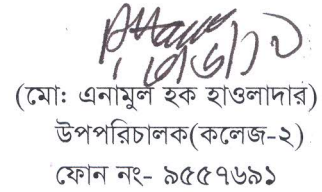 (মো: এনামুল হক হাওলাদার)
উপপরিচালক(কলেজ-২)
ফোন নং- ৯৫৫৭৬৯১